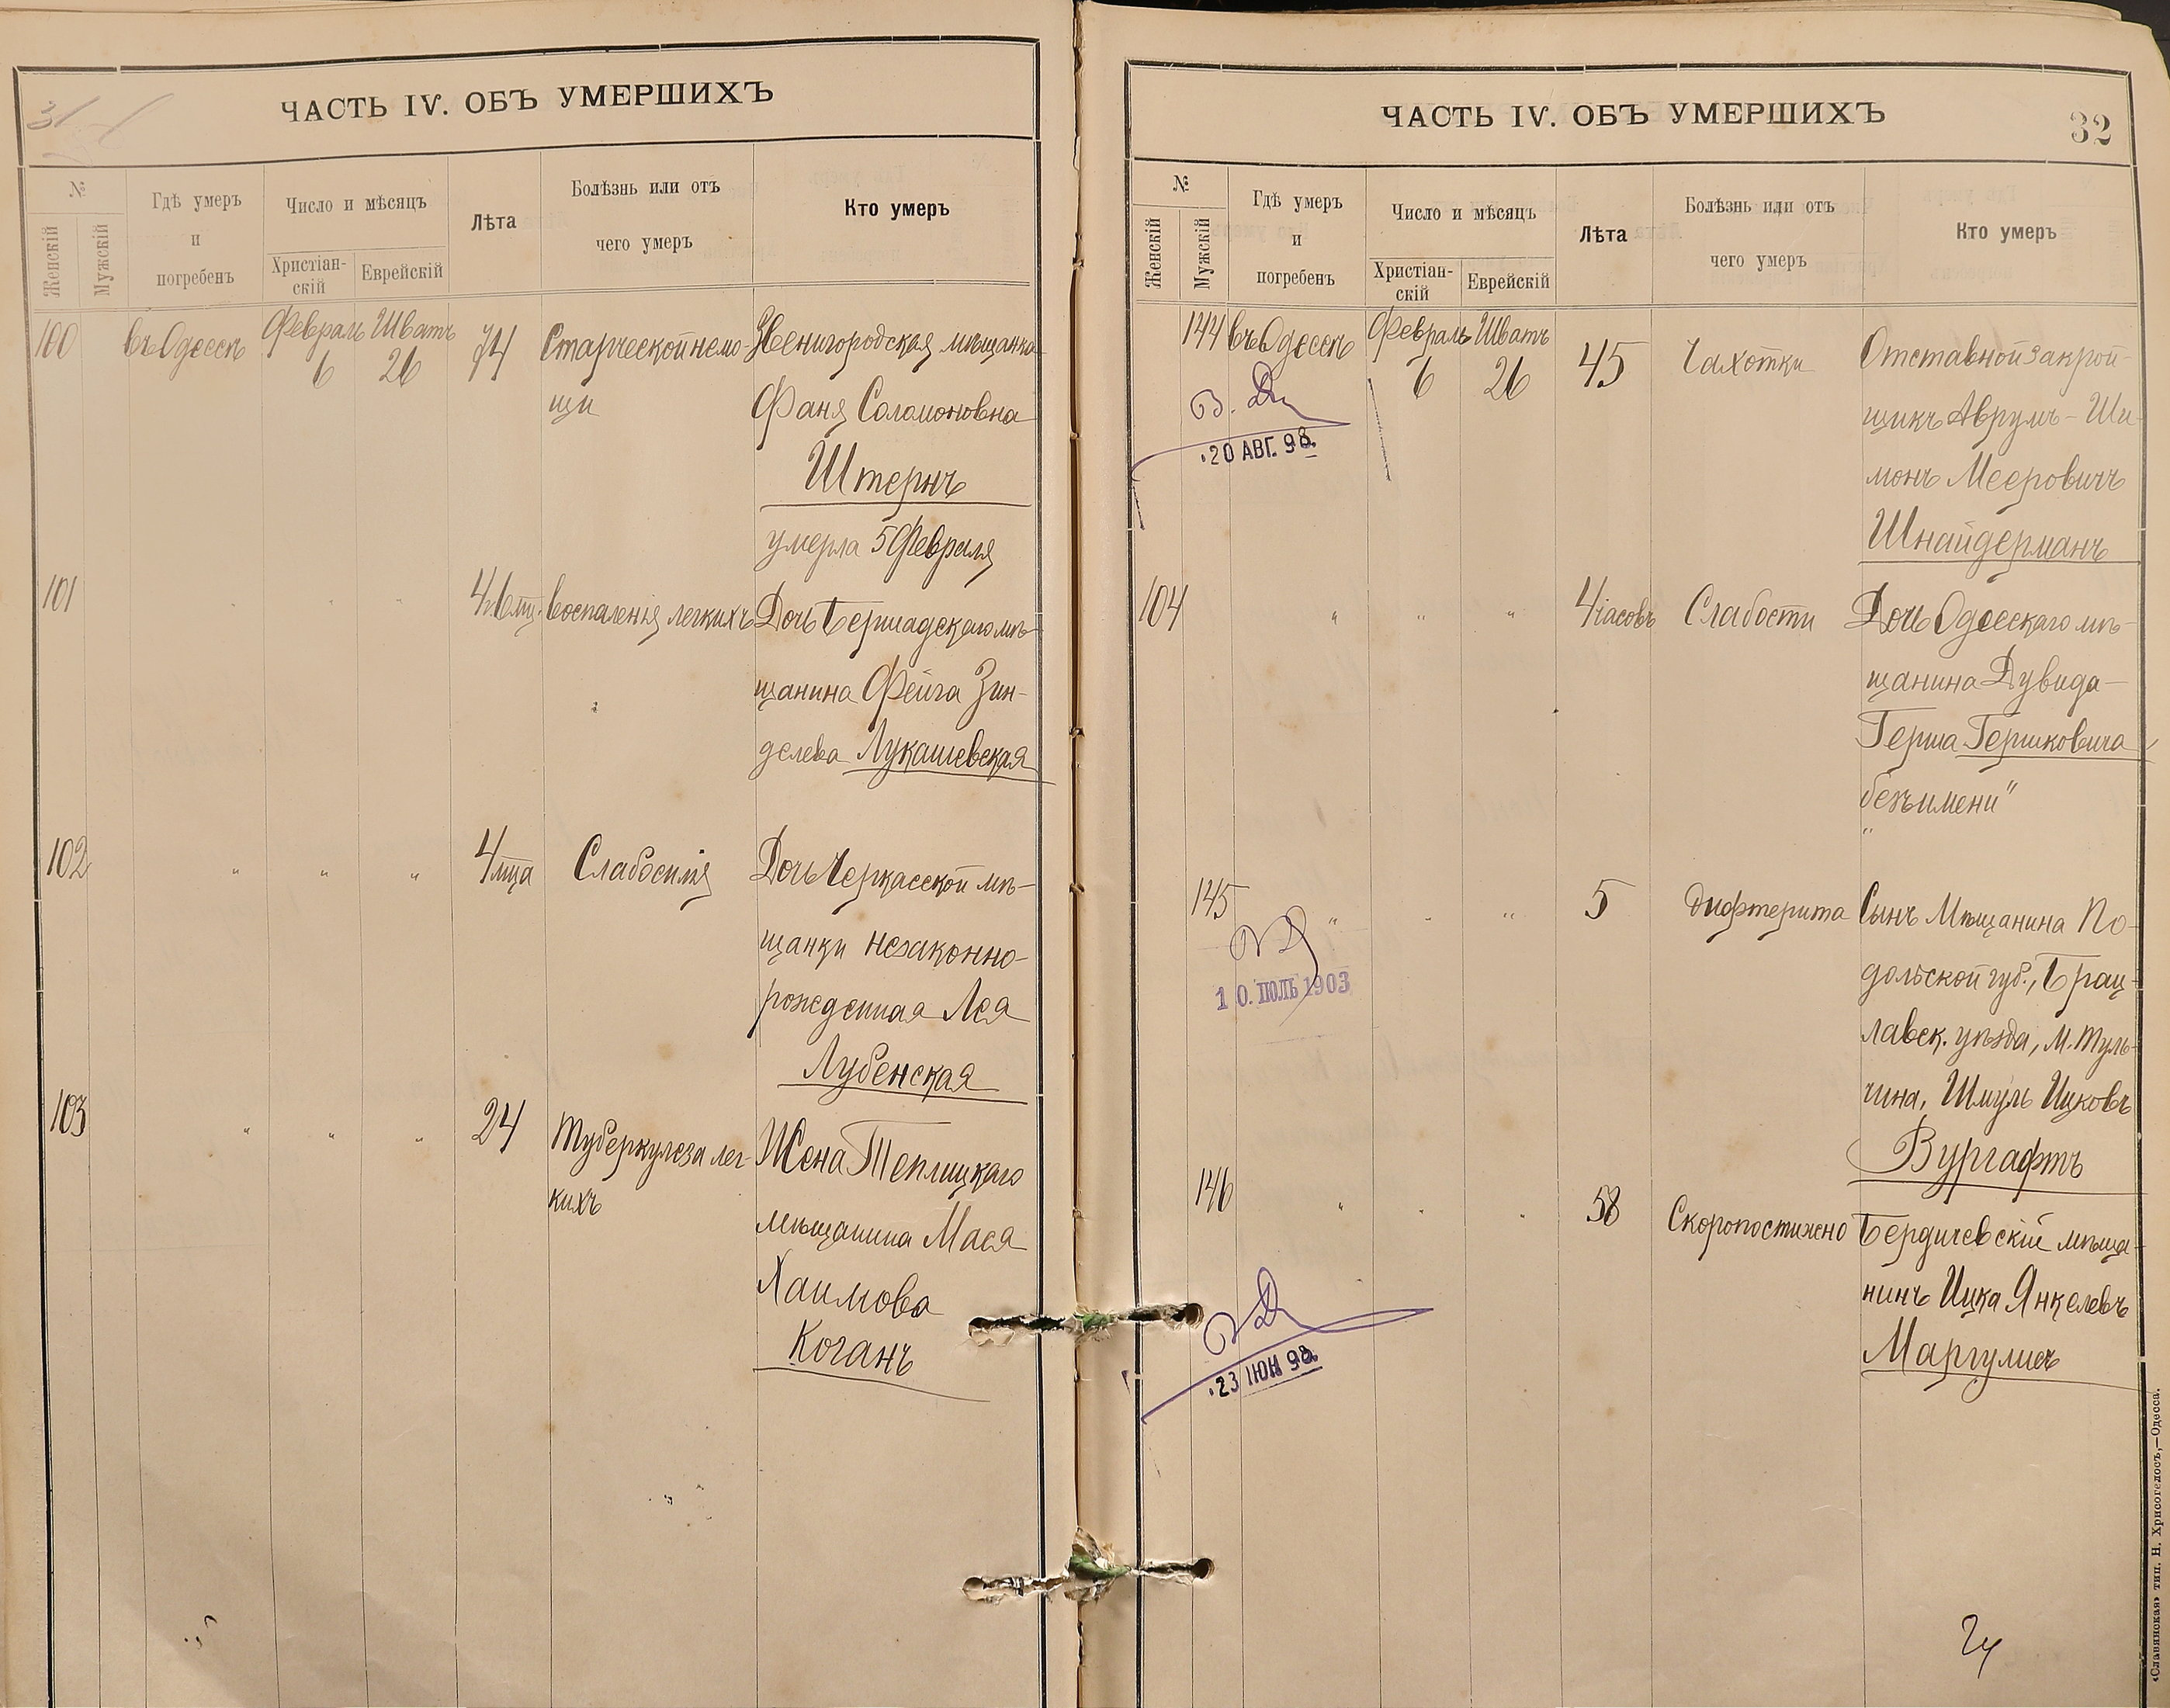 31
ЧАСТЬ IV. ОБЪ УМЕРШИХЪ
№
Женскій
Мужскій
Гдѣ умеръ
и
погребенъ
Число и мѣсяцъ
Христіан-
скій
Еврейскій
Лѣта
Болѣзнь или отъ
чего умеръ
Кто умеръ
100 въ Одессѣ Февраль Шватъ 74 Старческой немо- Звенигородская мѣщанка
6 26 щи Фаня Соломоновна
Штернъ
умерла 5 Февраля
101 " " " воспаленія легкихъ Дочь Бершадскаго мѣ-
щанина Фейга Зин-
делева Лукашевская
102 " " " 4 м̅ца Слабосилія Дочь Черкасской мѣ-
щанки незаконно-
рожденная Лея
Лубенская
103 " " " 24 Туберкулеза лег- Жена Теплицкаго
кихъ мѣщанина Мася
Хаимова
Коганъ
ЧАСТЬ IV. ОБЪ УМЕРШИХЪ
32
№
Женскій
Мужскій
Гдѣ умеръ
и
погребенъ
Число и мѣсяцъ
Христіан-
скій
Еврейскій
Лѣта
Болѣзнь или отъ
чего умеръ
Кто умеръ
144 въ Одессѣ Февраль Шватъ 45 Чахотки Отставной закрой-
6 26 щикъ Аврумъ-Ши-
20 АВГ. 98. монъ Мееровичъ
Шнайдерманъ
104 " " " 4 часовъ Слабости Дочь Одесскаго мѣ-
щанина Дувида-
Герша Гершковича
безъ имени"
145 " " " 5 дифтерита Сынъ Мѣщанина По-
10. ІЮЛЬ 1903 дольской губ., Брац-
лавск. уѣзда, м. Туль-
чина, Шмуль Ицковъ
Вургафтъ
146 " " " 58 Скоропостижно Бердичевскій мѣща-
нинъ Ицка Янкелевъ
23 ІЮН 98. Маргулисъ
«Славянская» тип. Н. Хрисогелосъ,—Одесса.